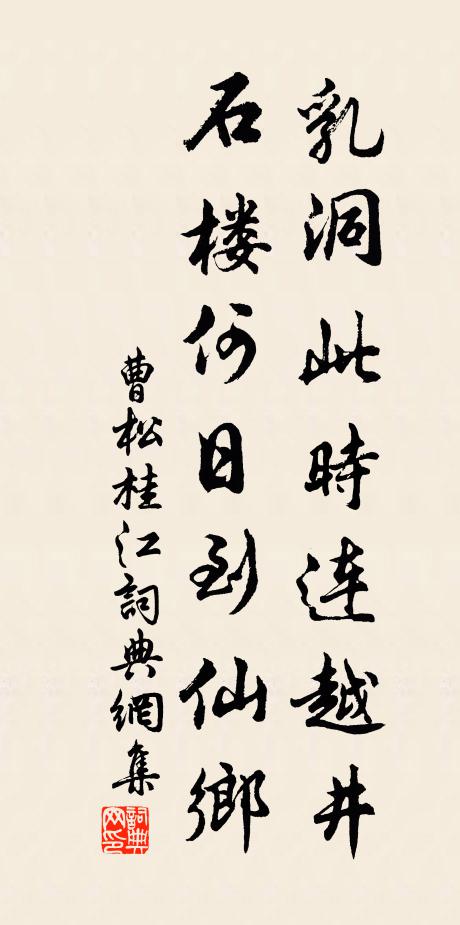 乳洞此時連越井
石楼何日到仙鄉
曹松桂江詞典網集
詞典网印